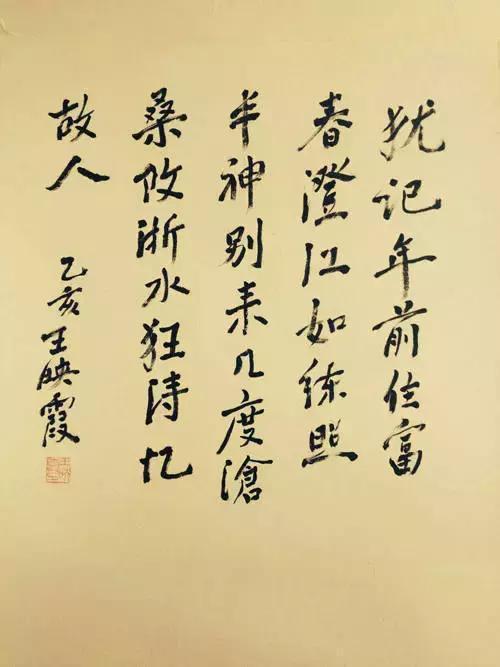 犹记年前住富
春澄江如练照
丰神别来几度沧
桑改浙水狂涛忆
故人
乙亥王映霞